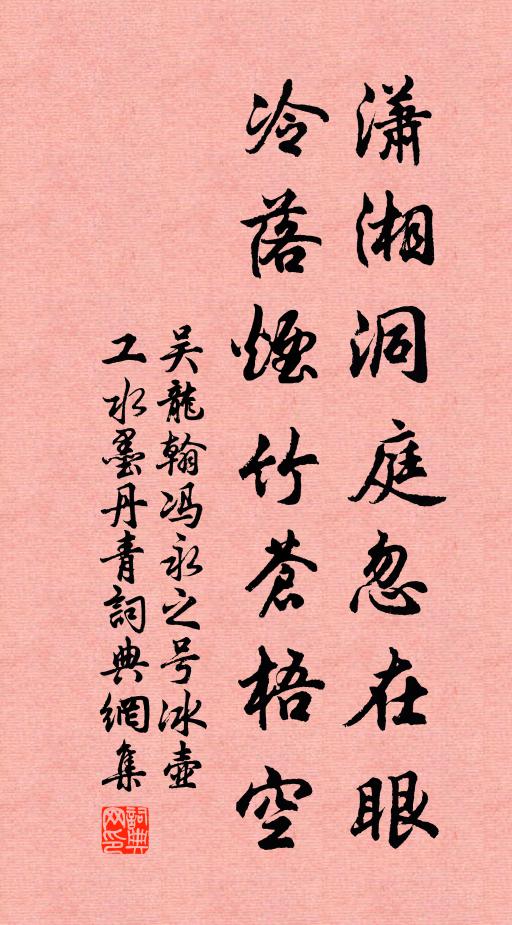 瀟湘洞庭忽在眼
冷落煙竹蒼梧空
吴龍翰冯永之号冰壶
工水墨丹青詞典網集
詞典网印